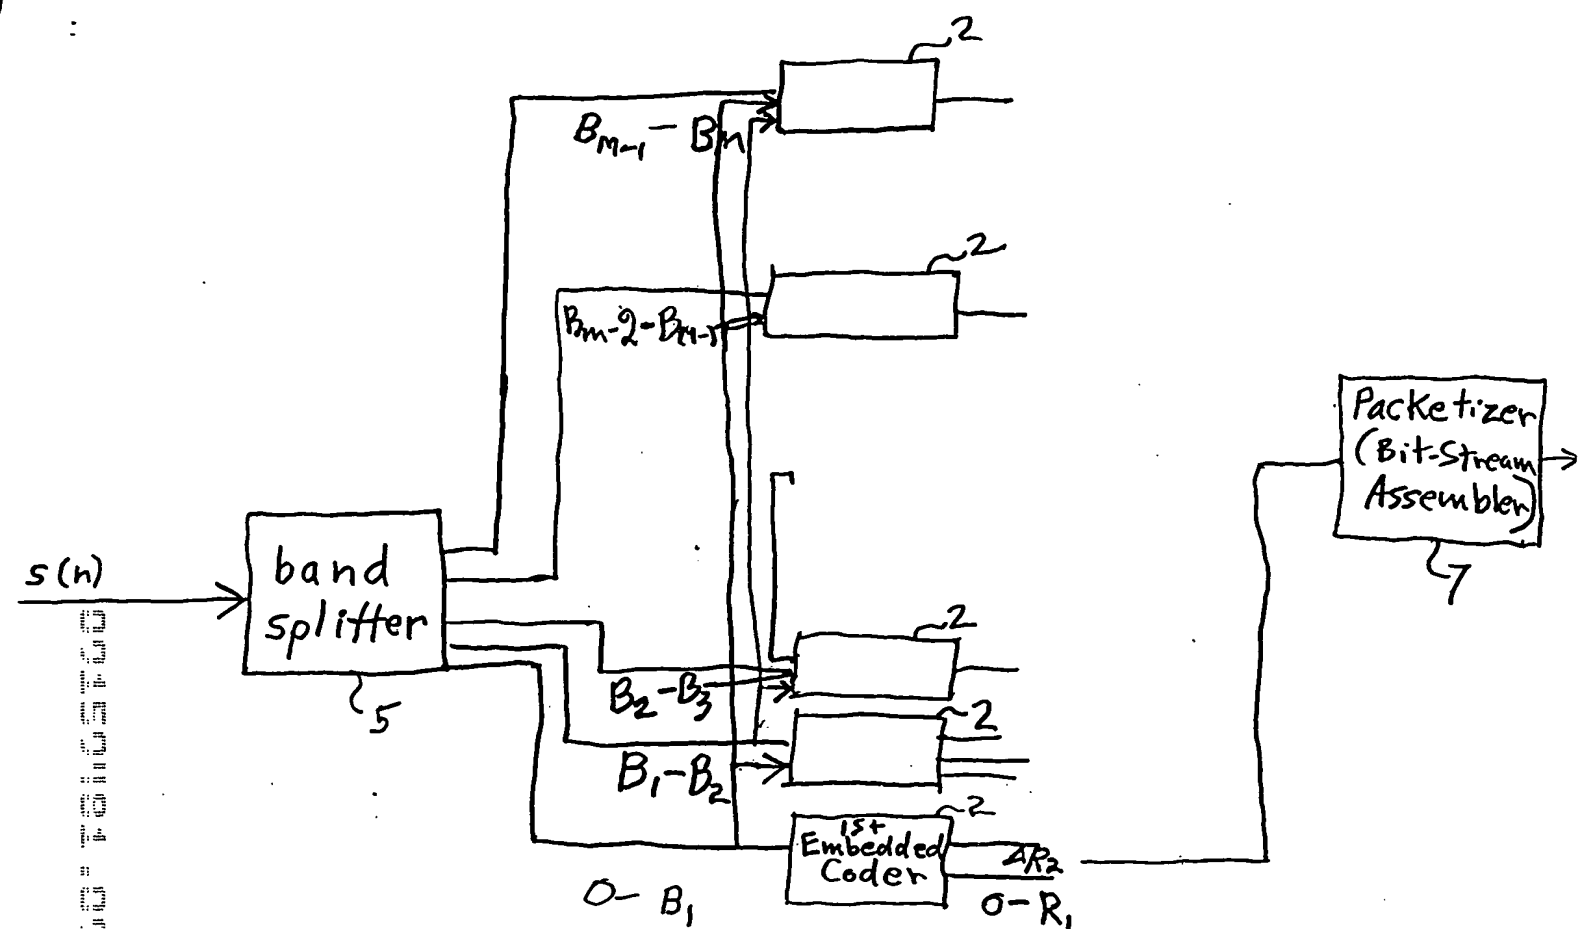 2
Bm-1 - Bn
2
Bm-2-Bm-1
Packetizer
(Bit-Stream
Assembler)
7
s(n)
band
splitter
5
2
B2-B3
2
B1-B2
2
1st
Embedded
Coder
ΔR2
0-B1
0-R1